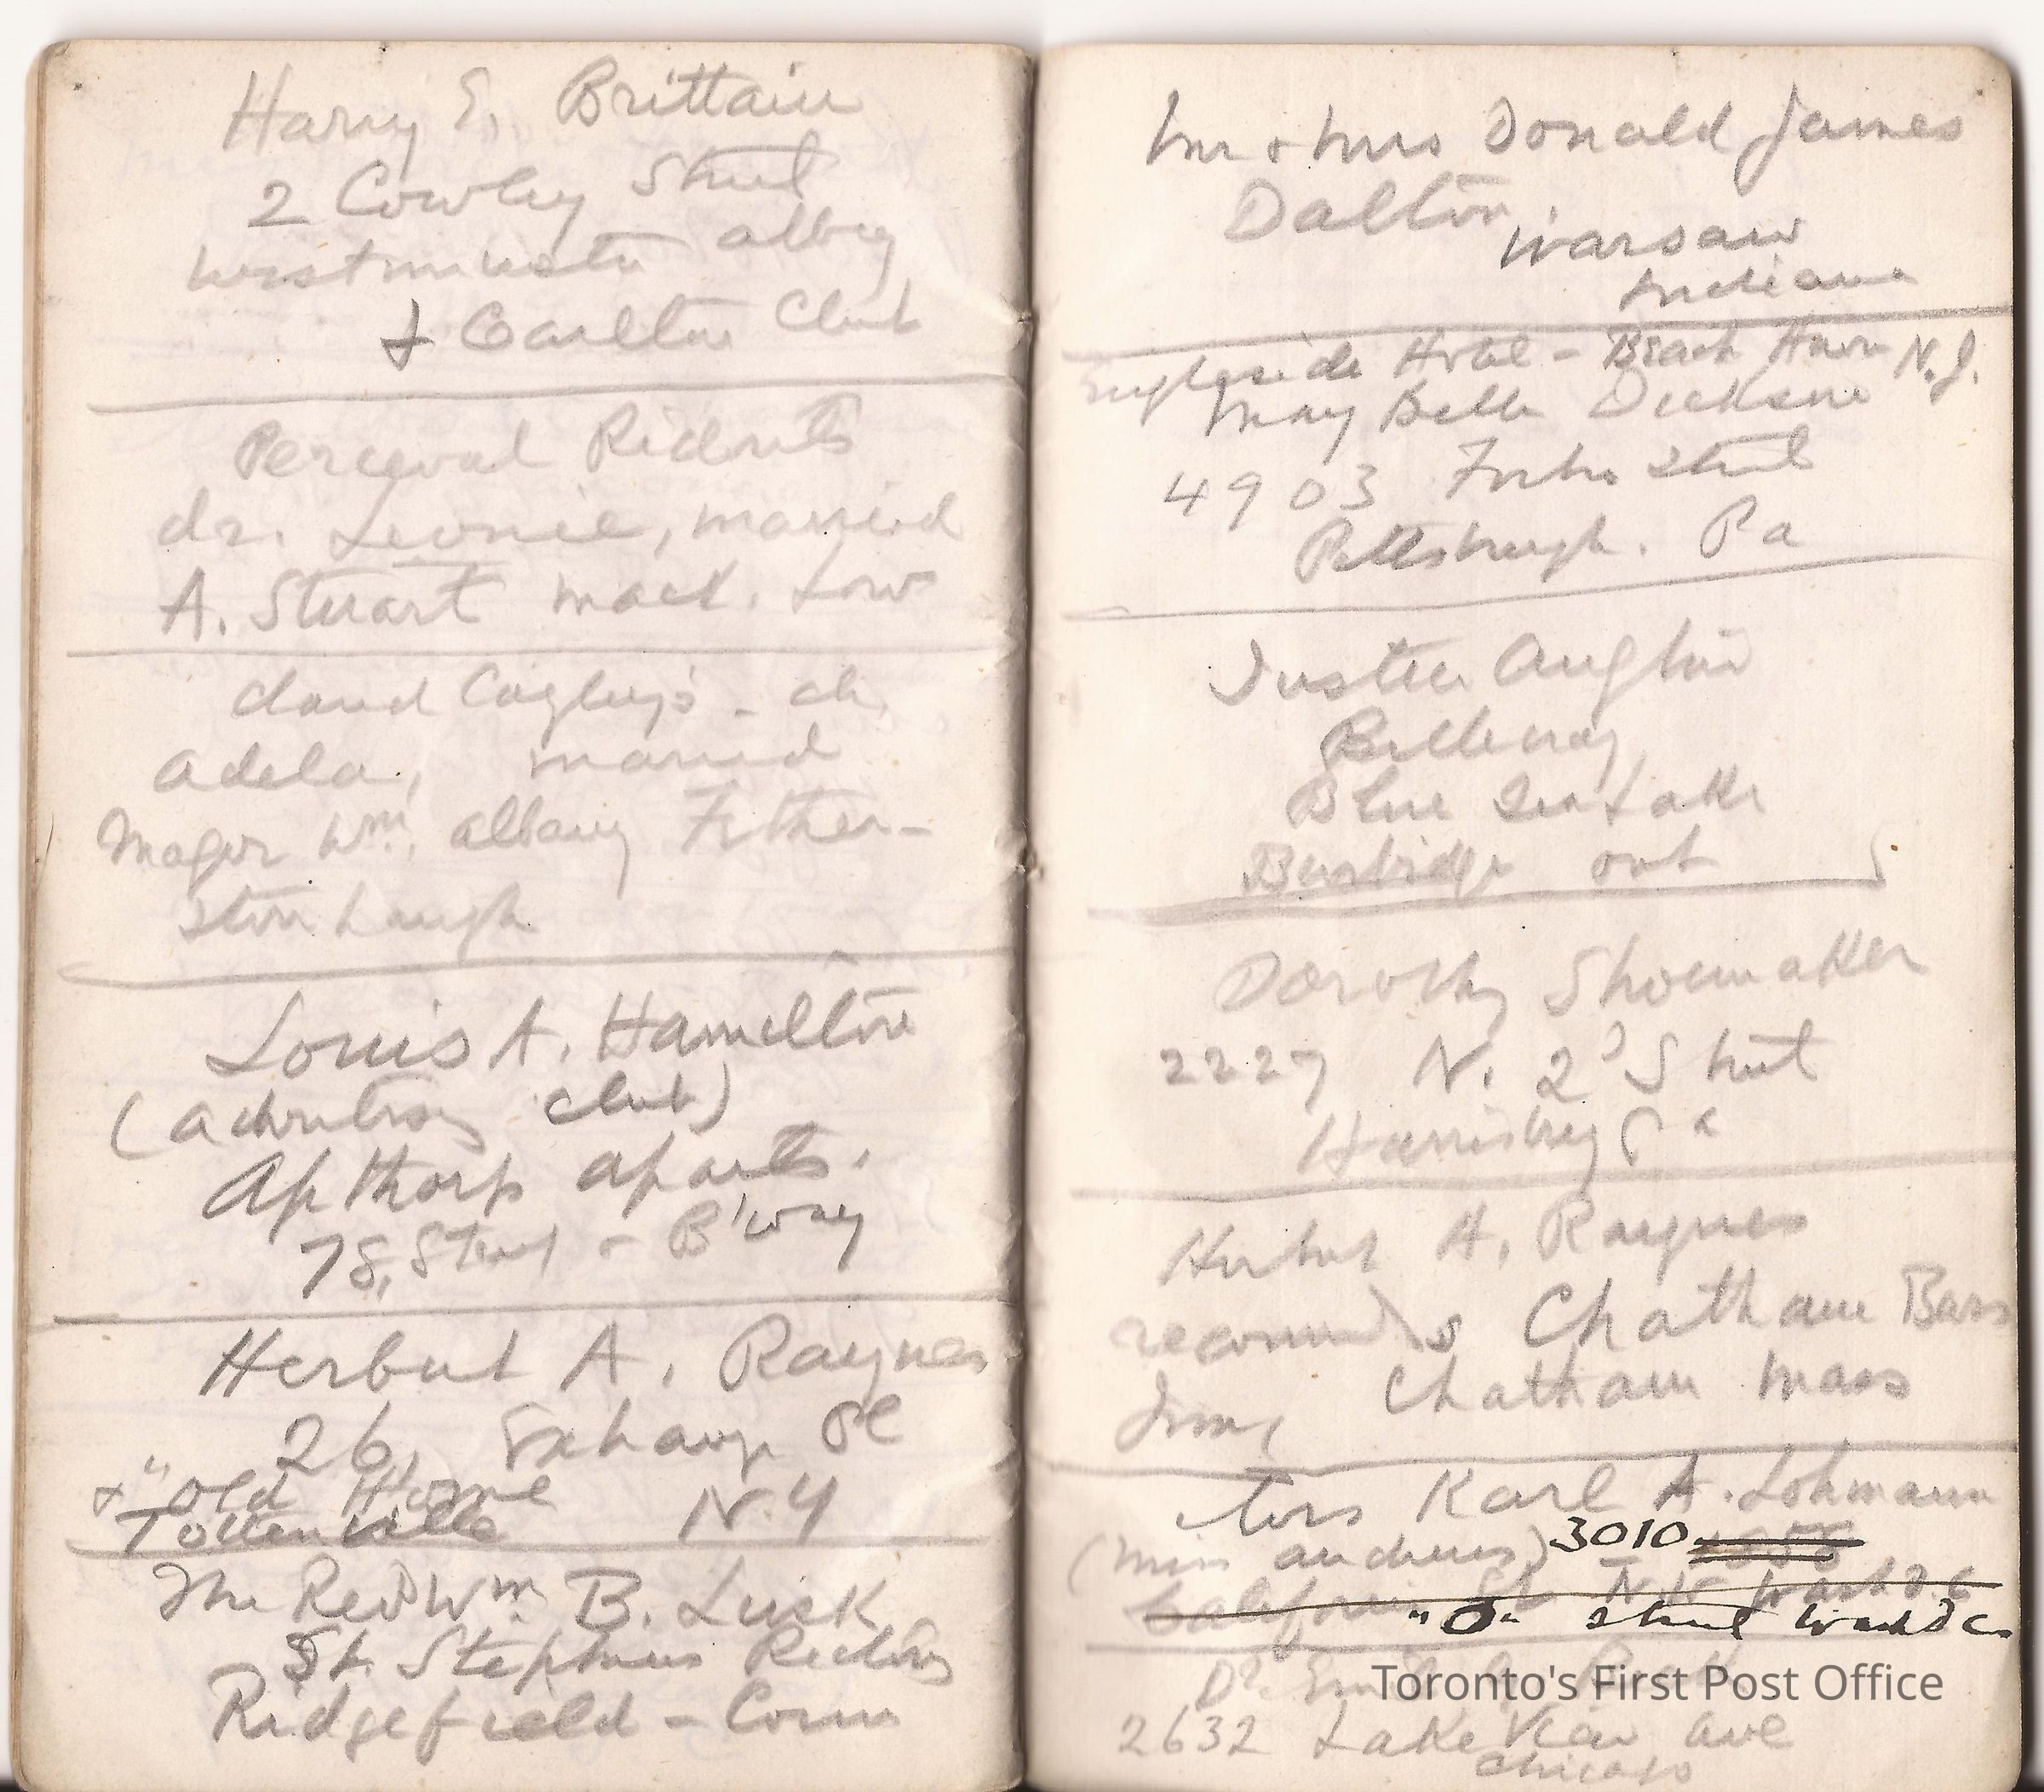 Harry E. Brittain
2 Cowley Street
Westminster abbey
& Carlton Club
Perceval Ridouts
dr. Leonie, married
A. Stuart Mack. Low
Claud Cayley's - ch.
Adela, married
Major Wm. albany Fether-
stonhaugh
Louis A. Hamilton
(adventurers club)
Apthorp aparts.
78. Street - B'way
Herbert A. Raynes
26, Exchange Pl
+ "old Home N.Y
Tottenville
The Revd Wm. B. Lusk
St. Stephens Rectory
Ridgefield - Conn
Mr & Mrs Donald James
Dalton,
Warsaw
Indiana
Engleside Hotel - Beach Haven N.J.
May Belle Dickson
4903 Forbes Street
Pittsburgh. Pa
Justice Anglin
Blue Sea Lake
ont
Dorothy Shoemaker
2227 N. 2d Street
Harrisburg Pa
Herbert A. Raynes
recommends Chatham Bars
Inn, Chatham Mass
Mrs Karl A. Lohmann
(Miss andrews) 3010
California St N.W Wash D.C
"O" Street Wash D C
Dr.
2632 Lake View ave
Chicago
Toronto's First Post Office